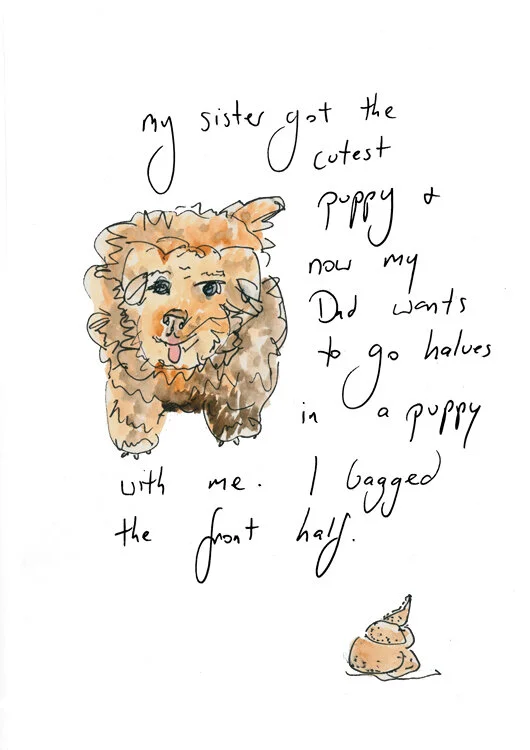 my sister got the
cutest
puppy &
now my
Dad wants
to go halves
in a puppy
with me. I bagged
the front half.